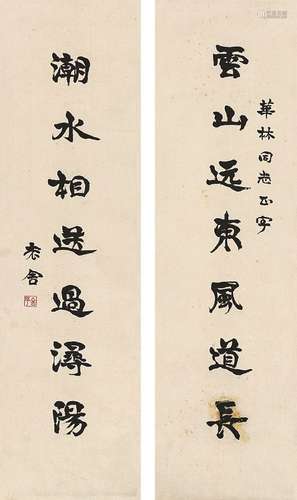 雲山远東風道長
華林同志正字
潮水相送過潯陽
老舍